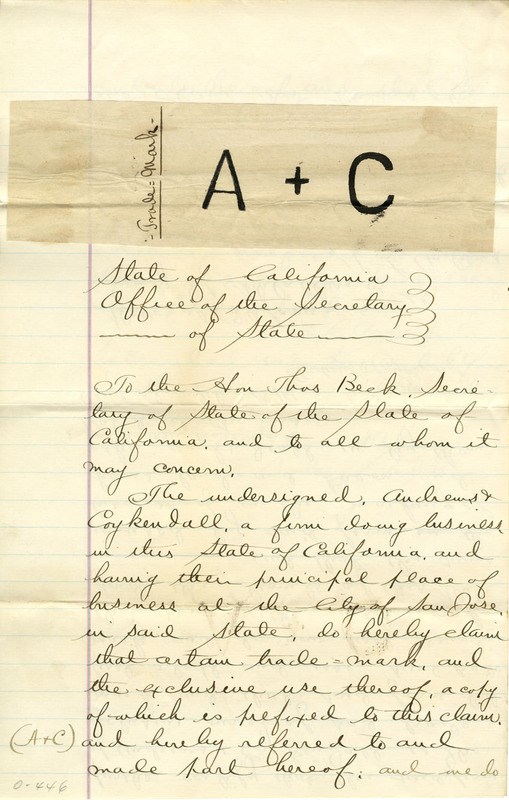 - Trade = Mark -
A + C
State of California
Office of the Secretary
of State
To the Hon Thos Beck, Secre-
tary of State of the State of
California, and to all whom it
may concern.
The undersigned, Andrews &
Coykendall, a firm doing business
in this State of California, and
having their principal place of
business at the City of San Jose,
in said State, do hereby claim
that certain trade = mark, and
the exclusive use thereof, a copy
of which is prefixed to this claim,
(A+C) and hereby referred to and
made part hereof; and we do
0-446